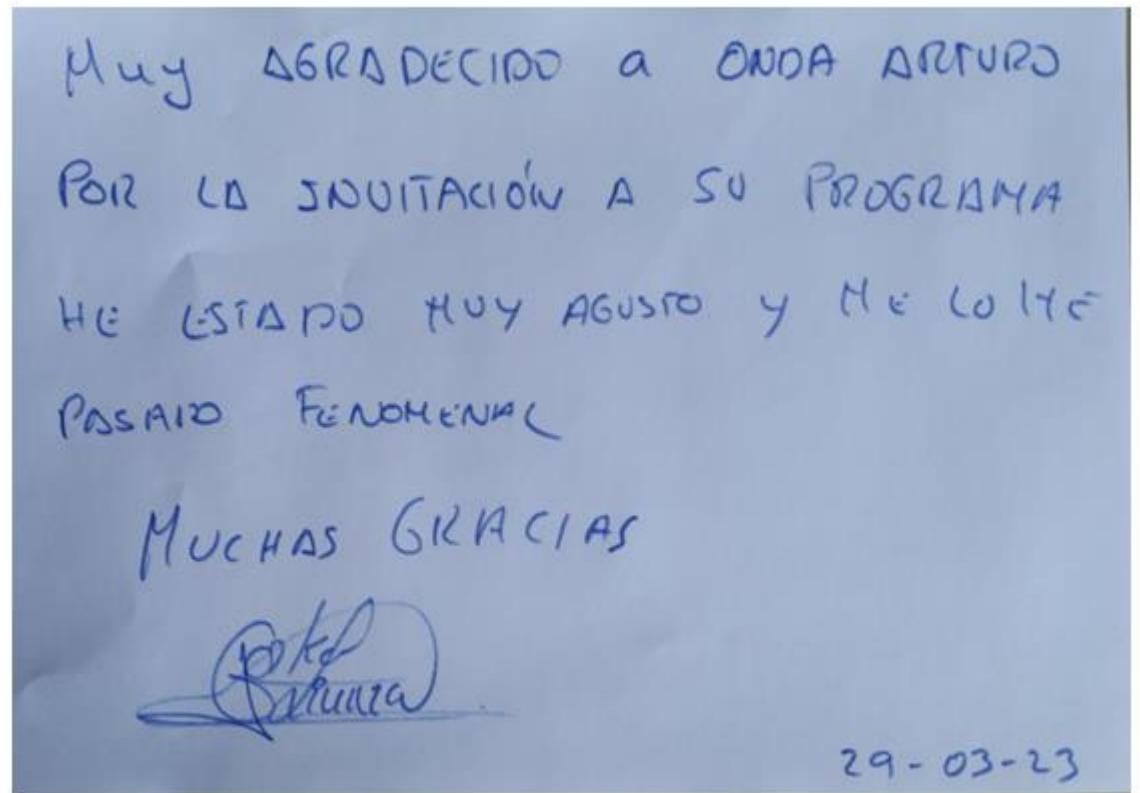 Muy AGRADECIDO a ONDA ARTURO
POR LA INVITACIÓN A SU PROGRAMA
HE ESTADO MUY AGUSTO Y ME LO HE
PASADO FENOMENAL
MUCHAS GRACIAS
29-03-23